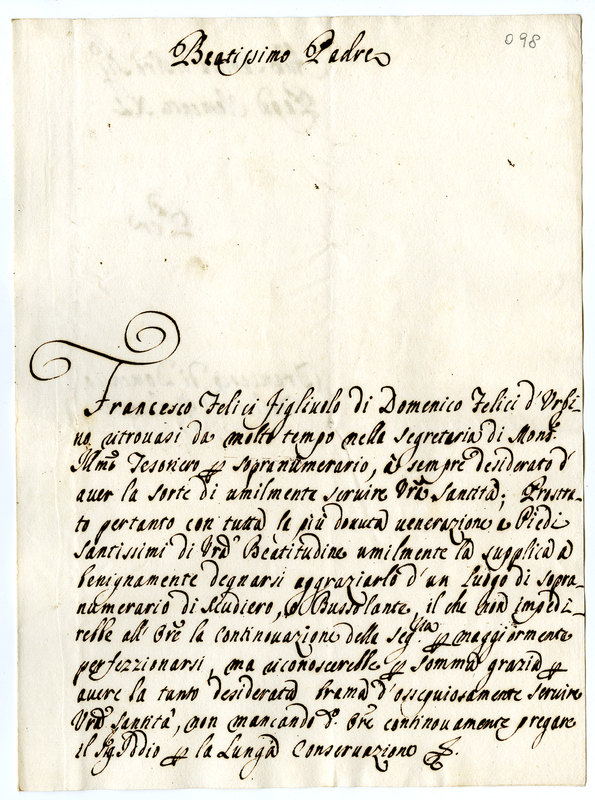 098
Beatissimo Padre
Francesco Felici figliuolo di Domenico Felici d'Urbi-
no, ritrouasi da molto tempo nella segretaria di Mons.r
Illmõ Tesoriero p sopranumerario, à sempre desiderato d'
auer la sorte di umilmente seruire Vrã Santità; Prostra-
to pertanto con tutta la più douuta uenerazione a Piedi
santissimi di Vrã Beatitudine umilmente la supplica a
benignamente degnarsi aggraziarlo d'un luogo di sopra-
numerario di Scudiero, o Bussolante, il che non impedi-
rebbe all' Orẽ la continouazione della Seg.ria p maggiormente
perfezzionarsi, ma riconoscerebbe p somma grazia p
auere la tanto desiderata brama d'ossequiosamente seruire
Vrã Santità, non mancando d.o Orẽ continouamente pregare
il Sig Iddio p la lunga conseruazione &.